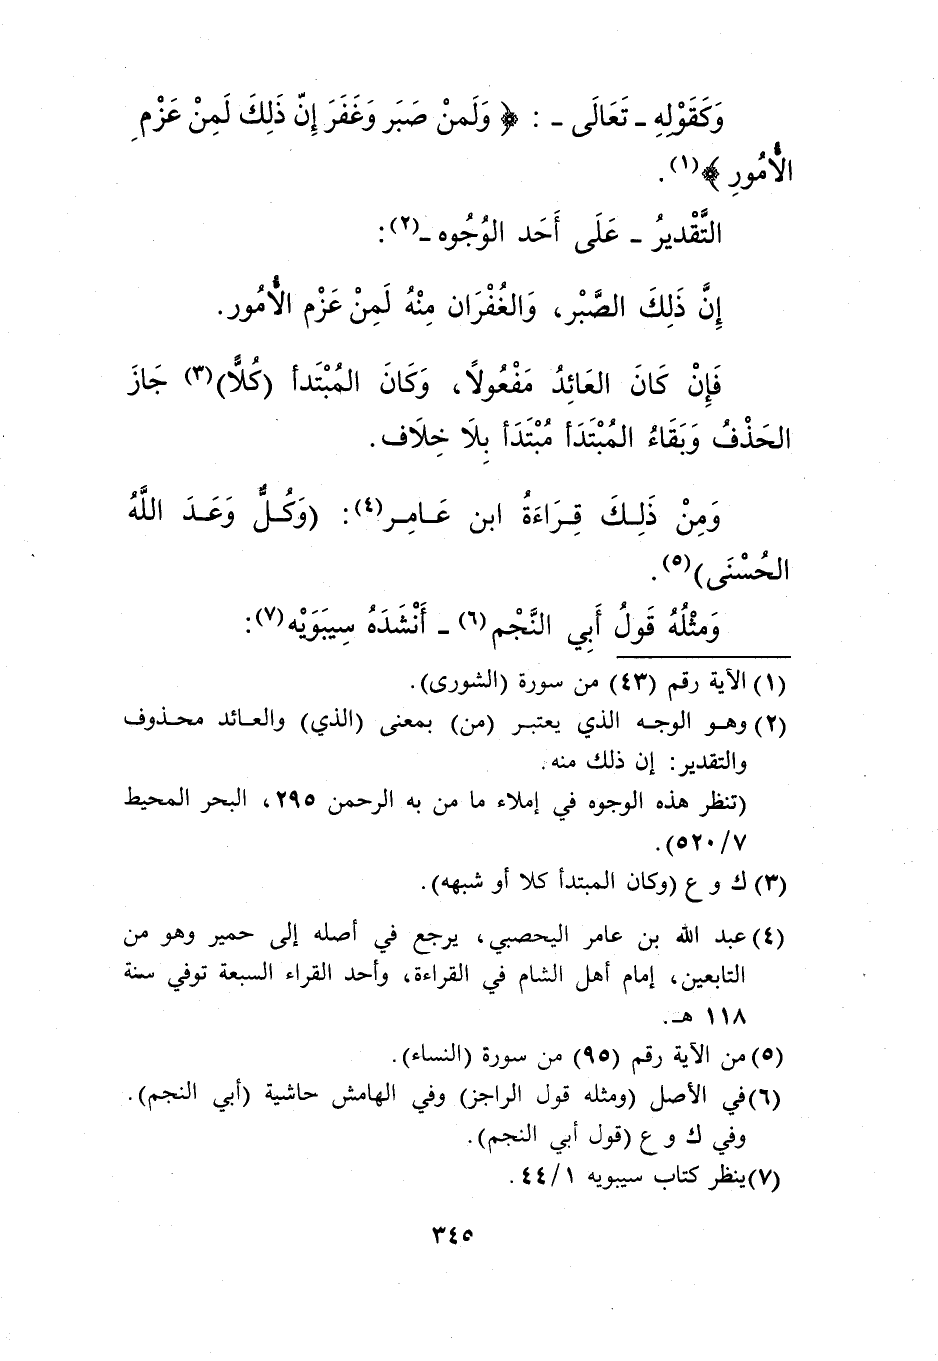 وَكَقَوْلِهِ ـ تَعَالَى ـ : ﴿ وَلَمنْ صَبَر وَغَفَرَ إِنّ ذَلِكَ لَمِنْ عَزْمِ
الأُمُورِ ﴾(١).
التَّقْديرُ ـ عَلَى أَحَد الوُجُوه ـ(٢):
إِنَّ ذَلِكَ الصَّبْر، وَالغُفْرَان مِنْهُ لَمِنْ عَزْم الأُمُور.
فَإِنْ كَانَ العَائِدُ مَفْعُولاً، وَكَانَ المُبْتَدأ (كُلًّا)(٣) جَازَ
الحَذْفُ وَبَقَاءُ المُبْتَدَأ مُبْتَدَأ بِلَا خِلَاف.
وَمِنْ ذَلِكَ قِرَاءَةُ ابن عَامِر(٤): (وَكُلٌّ وَعَدَ اللَّهُ
الحُسْنَى)(٥).
وَمثْلُهُ قَولُ أَبِي النَّجْم(٦) ـ أَنْشَدَهُ سِيبَوَيْه(٧):
(١) الآية رقم (٤٣) من سورة (الشورى).
(٢) وهو الوجه الذي يعتبر (من) بمعنى (الذي) والعائد محذوف
والتقدير: إن ذلك منه.
(تنظر هذه الوجوه في إملاء ما من به الرحمن ٢٩٥، البحر المحيط
٥٢٠/٧).
(٣) ك و ع (وكان المبتدأ كلا أو شبهه).
(٤) عبد الله بن عامر اليحصبي، يرجع في أصله إلى حمير وهو من
التابعين، إمام أهل الشام في القراءة، وأحد القراء السبعة توفي سنة
١١٨ هـ.
(٥) من الآية رقم (٩٥) من سورة (النساء).
(٦) في الأصل (ومثله قول الراجز) وفي الهامش حاشية (أبي النجم).
وفي ك و ع (قول أبي النجم).
(٧) ينظر كتاب سيبويه ٤٤/١.
٣٤٥